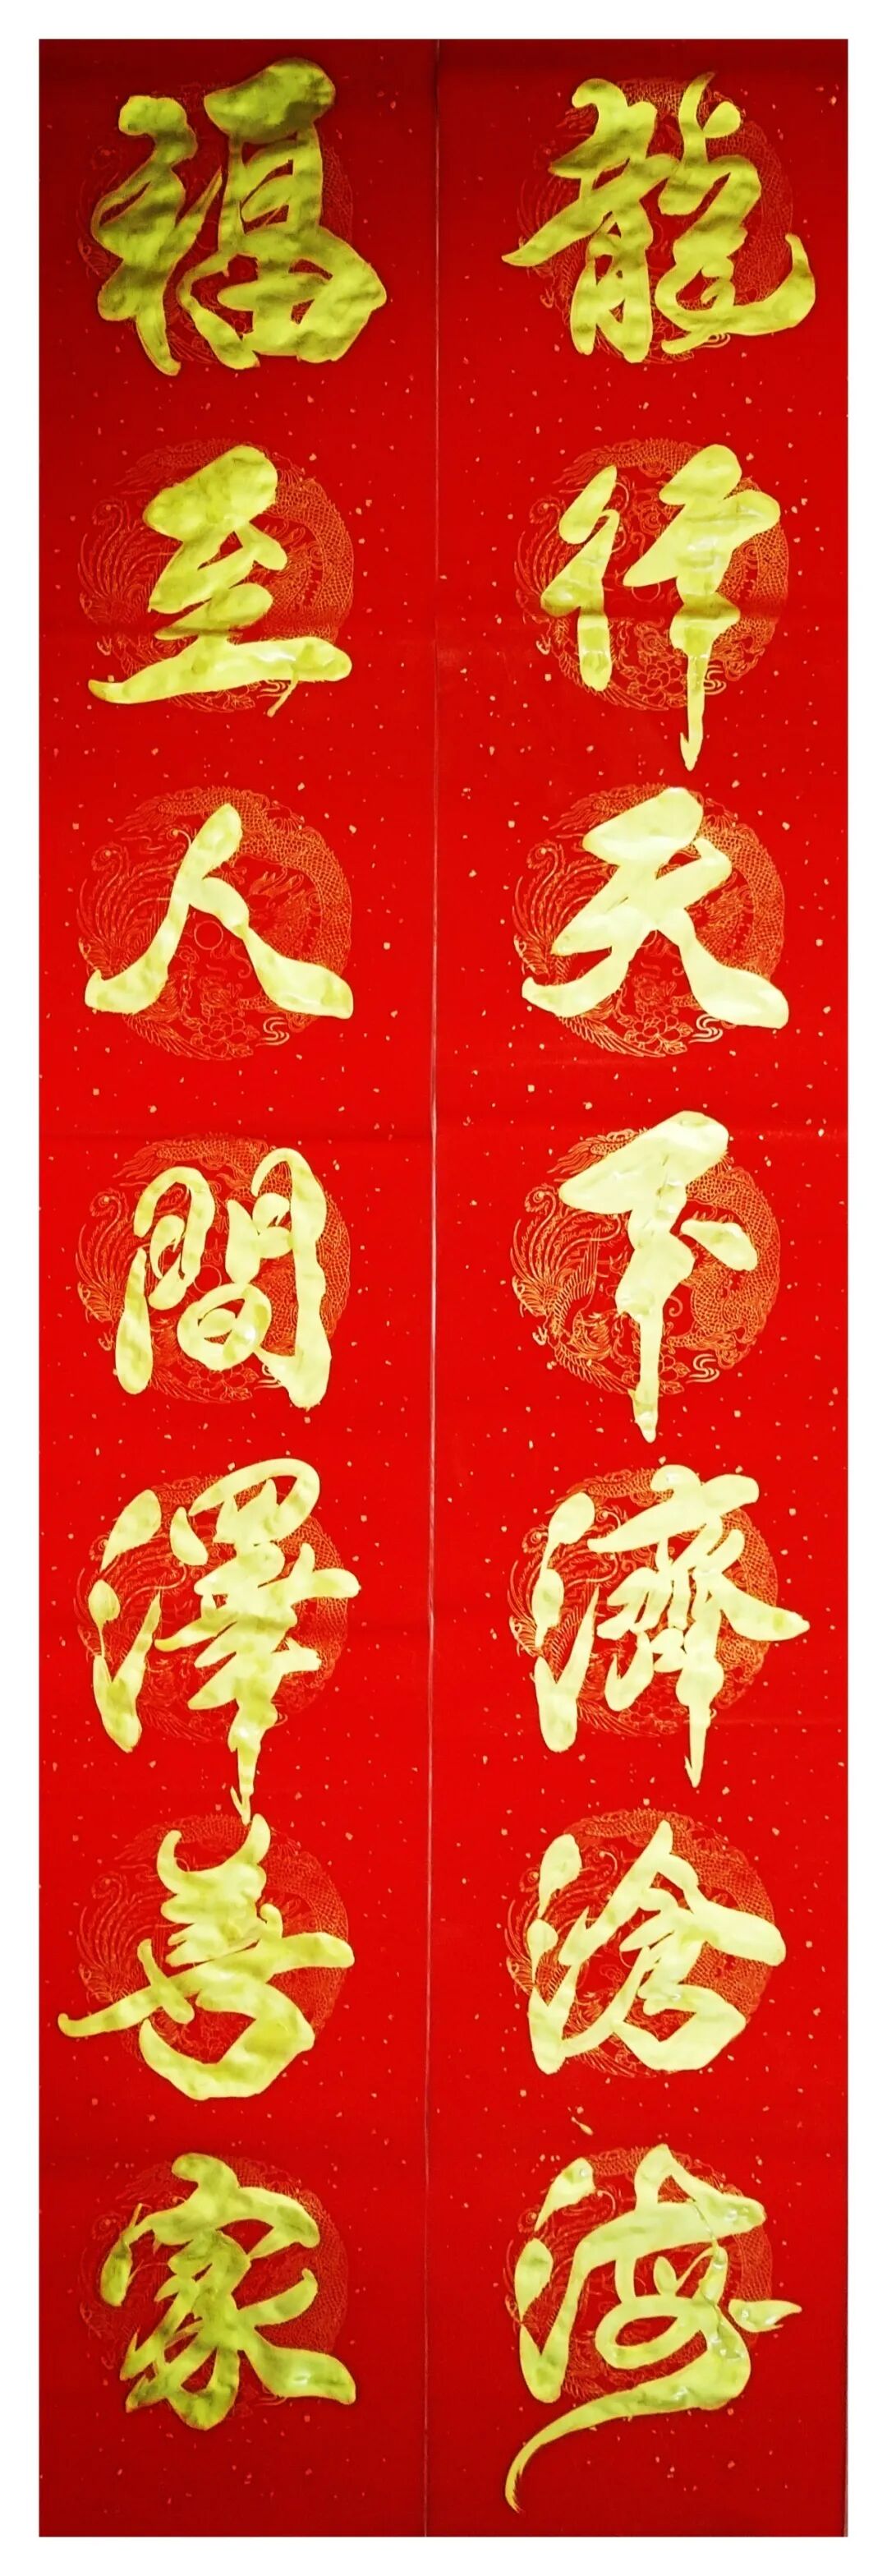 龍行天下濟滄海
福至人間澤善家